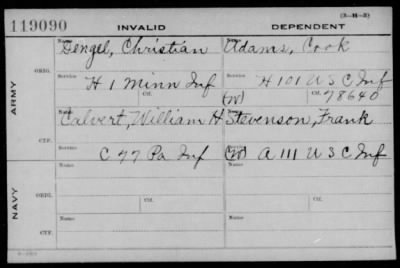 (3-H-3)
119090 INVALID DEPENDENT
Name Name
Dengel, Christian Adams, Cook
ORIG. Service Ctf. Service Ctf.
H 1 Minn Inf H 101 U S C Inf
(W) 78640
ARMY
Name Name
Calvert, William H Stevenson, Frank
CTF. Service Service
C 77 Pa Inf (W) A 111 U S C Inf
Name Name
ORIG. Service Ctf. Service Ctf.
NAVY
Name Name
CTF.